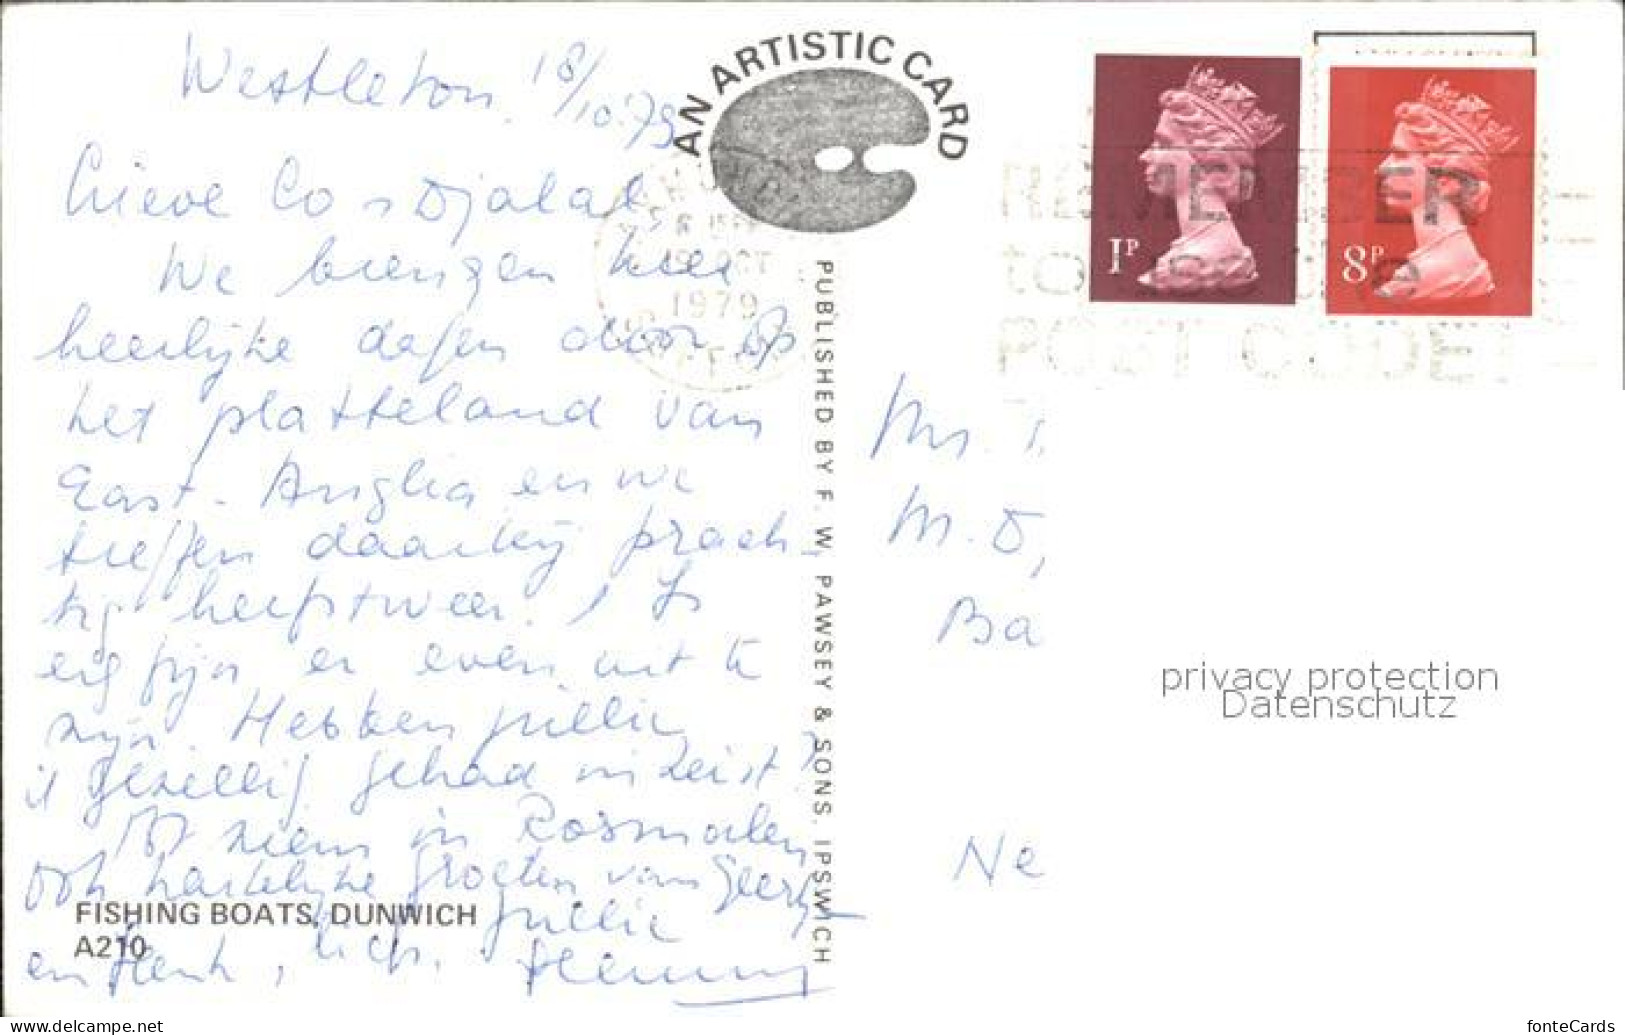 Westleton. 18/10.'79
AN ARTISTIC CARD
Lieve Co
We brengen hier
heerlijke dagen door op
het platteland van
East-Anglia en we
treffen daarbij prach-
tig herfstweer.
fijn er even uit te
zijn. Hebben jullie
't gezellig gehad in Zeist?
in Rosmalen
Ook hartelijke groeten van
en Henk, liefs, jullie
FISHING BOATS, DUNWICH
A210
PUBLISHED BY F. W. PAWSEY & SONS. IPSWICH
19 OCT
1979
1P
8P
REMEMBER
to use the
POST CODE
Mr.
M. D
Ba
Ne
privacy protection
Datenschutz
www.delcampe.net
fonteCards